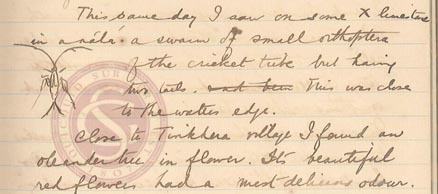 This same day I saw on some X limestone
in a nála a swarm of small orthoptera
of the cricket tribe but having
two tails. This was close
to the waters edge.
Close to Tirikhera village I found an
oleander tree in flower. Its beautiful
red flowers had a most delicious odour.